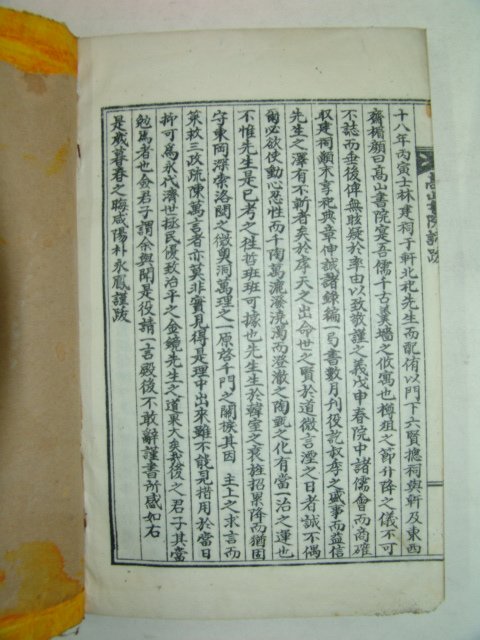 高山書院誌跋
十八年丙寅士林建祠子軒北祀先生而配侑以門下六賢摠祠與軒及東西
齋楣顔曰高山書院寔吾儒千古羹墻之攸寓也樽俎之節升降之儀不可
不誌而垂後俾無眩疑於率由以致敬謹之義戊申春院中諸儒會而商確
収建祠顚末享祀典章伸誠諸錄編一弓書數月刋役訖叙李之盛事而益信
先生之澤有不斬者矣於序天之出命世之賢於道微言湮之日者誠不偶
爾必欲使動心忍性而千陶萬漉潑澆濁而澄澈之陶甄之化有當一治之運也
不惟先生是已考之徃哲班班可據也先生生於韓室之衰旌招累降而猶固
守東岡深索洛閩之微奧洞萬理之一原啓千門之關鍵其因 主上之求言而
策救三政疏陳萬言者亦莫非實見得是理中出來雖不能見措用於當日
抑可爲永代濟世拯民優致治平之金鏡先生之道東大矣哉後之君子其當
勉焉者也僉君子謂余與聞是役請一言殿後不敢辭謹書所感如右
是歲暮春之晦咸陽朴永鳳謹跋